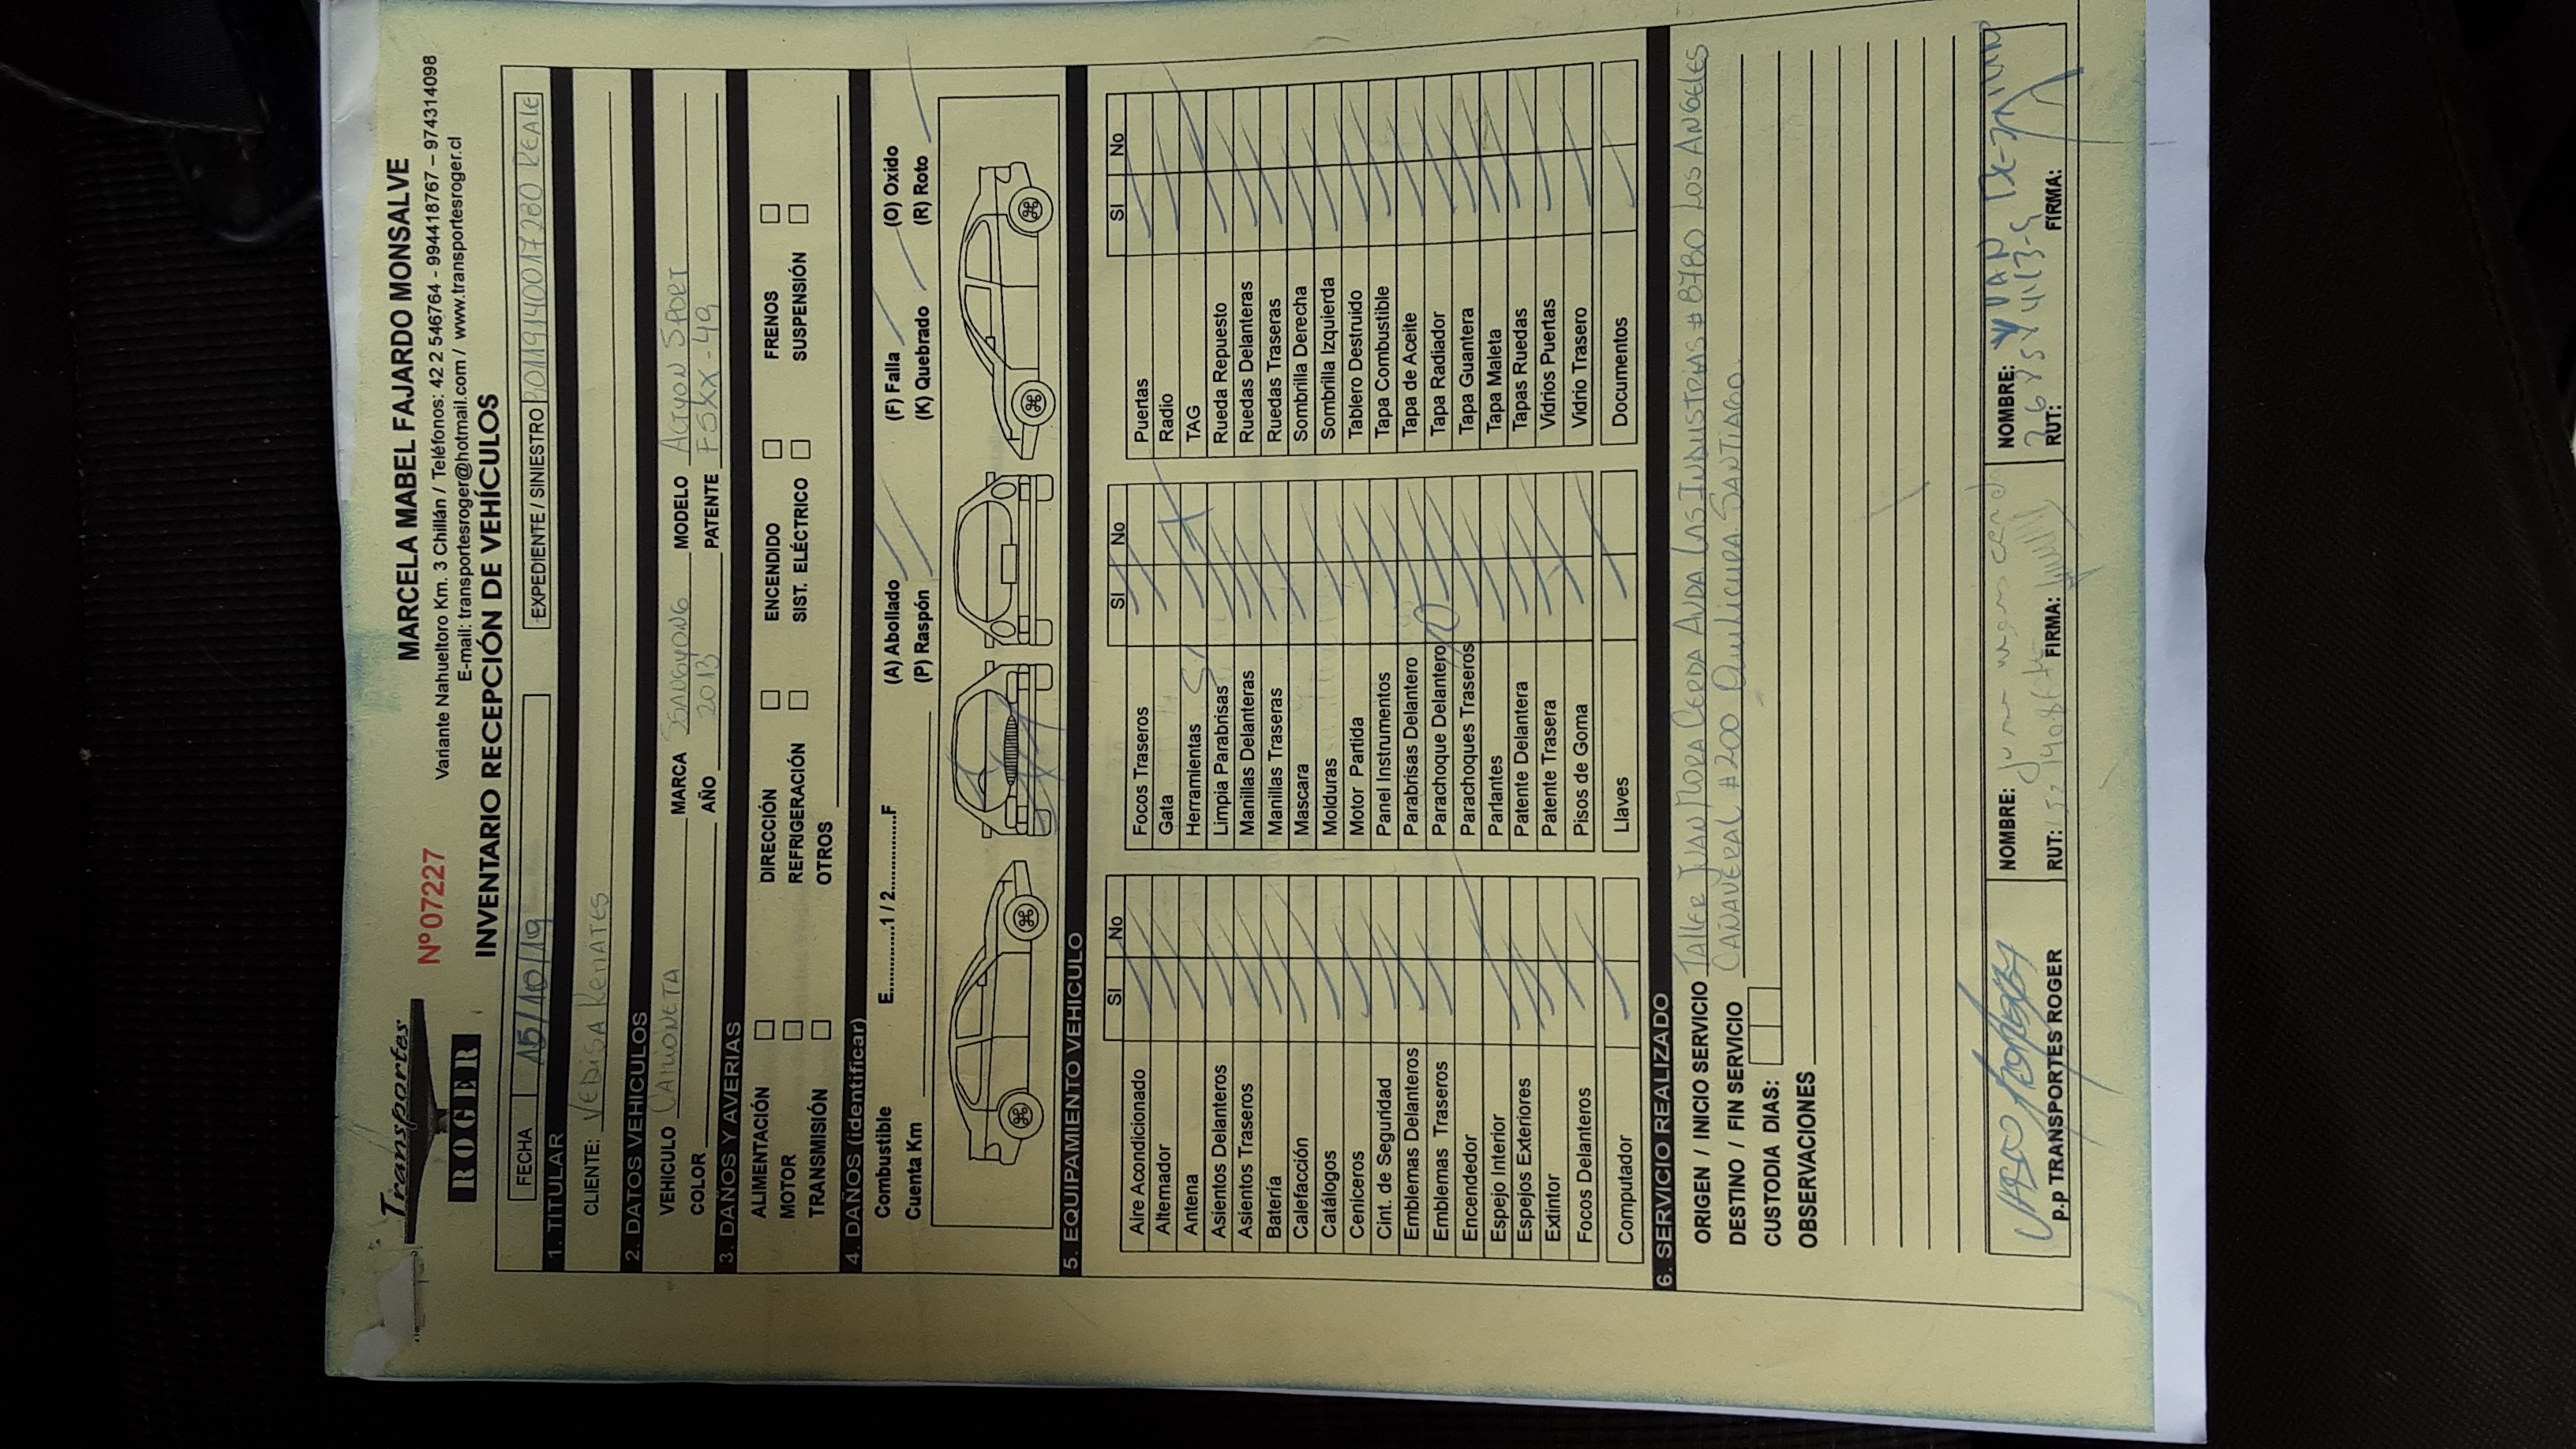 Transportes
ROGER
Nº 07227
MARCELA MABEL FAJARDO MONSALVE
Variante Nahueltoro Km. 3 Chillán / Teléfonos: 42 2 546764 - 994418767 – 974314098
E-mail: transportesroger@hotmail.com / www.transportesroger.cl
INVENTARIO RECEPCIÓN DE VEHÍCULOS
FECHA 15/10/19 EXPEDIENTE / SINIESTRO REALE
1. TITULAR
CLIENTE: VEDISA REMATES
2. DATOS VEHICULOS
VEHICULO CAMIONETA MARCA SSANGYONG MODELO ACTYON SPORT
COLOR AÑO 2013 PATENTE FSKX-49
3. DAÑOS Y AVERIAS
ALIMENTACIÓN DIRECCIÓN ENCENDIDO FRENOS
MOTOR REFRIGERACIÓN SIST. ELÉCTRICO SUSPENSIÓN
TRANSMISIÓN OTROS
4. DAÑOS (identificar)
Combustible E............1 / 2............F (A) Abollado (F) Falla (O) Oxido
Cuenta Km (P) Raspón (K) Quebrado (R) Roto
5. EQUIPAMIENTO VEHICULO
SI No SI No SI No
Aire Acondicionado Focos Traseros Puertas
Alternador Gata Radio
Antena Herramientas TAG
Asientos Delanteros Limpia Parabrisas Rueda Repuesto
Asientos Traseros Manillas Delanteras Ruedas Delanteras
Batería Manillas Traseras Ruedas Traseras
Calefacción Mascara Sombrilla Derecha
Catálogos Molduras Sombrilla Izquierda
Ceniceros Motor Partida Tablero Destruido
Cint. de Seguridad Panel Instrumentos Tapa Combustible
Emblemas Delanteros Parabrisas Delantero Tapa de Aceite
Emblemas Traseros Parachoque Delantero Tapa Radiador
Encendedor Parachoques Traseros Tapa Guantera
Espejo Interior Parlantes Tapa Maleta
Espejos Exteriores Patente Delantera Tapas Ruedas
Extintor Patente Trasera Vidrios Puertas
Focos Delanteros Pisos de Goma Vidrio Trasero
Computador Llaves Documentos
6. SERVICIO REALIZADO
ORIGEN / INICIO SERVICIO TALLER JUAN MORA CERDA AVDA LAS INDUSTRIAS # 8780 LOS ANGELES
DESTINO / FIN SERVICIO CAÑAVERAL #200 Quilicura SANTIAGO.
CUSTODIA DIAS:
OBSERVACIONES
NOMBRE: NOMBRE:
p.p TRANSPORTES ROGER RUT: FIRMA: RUT: FIRMA: